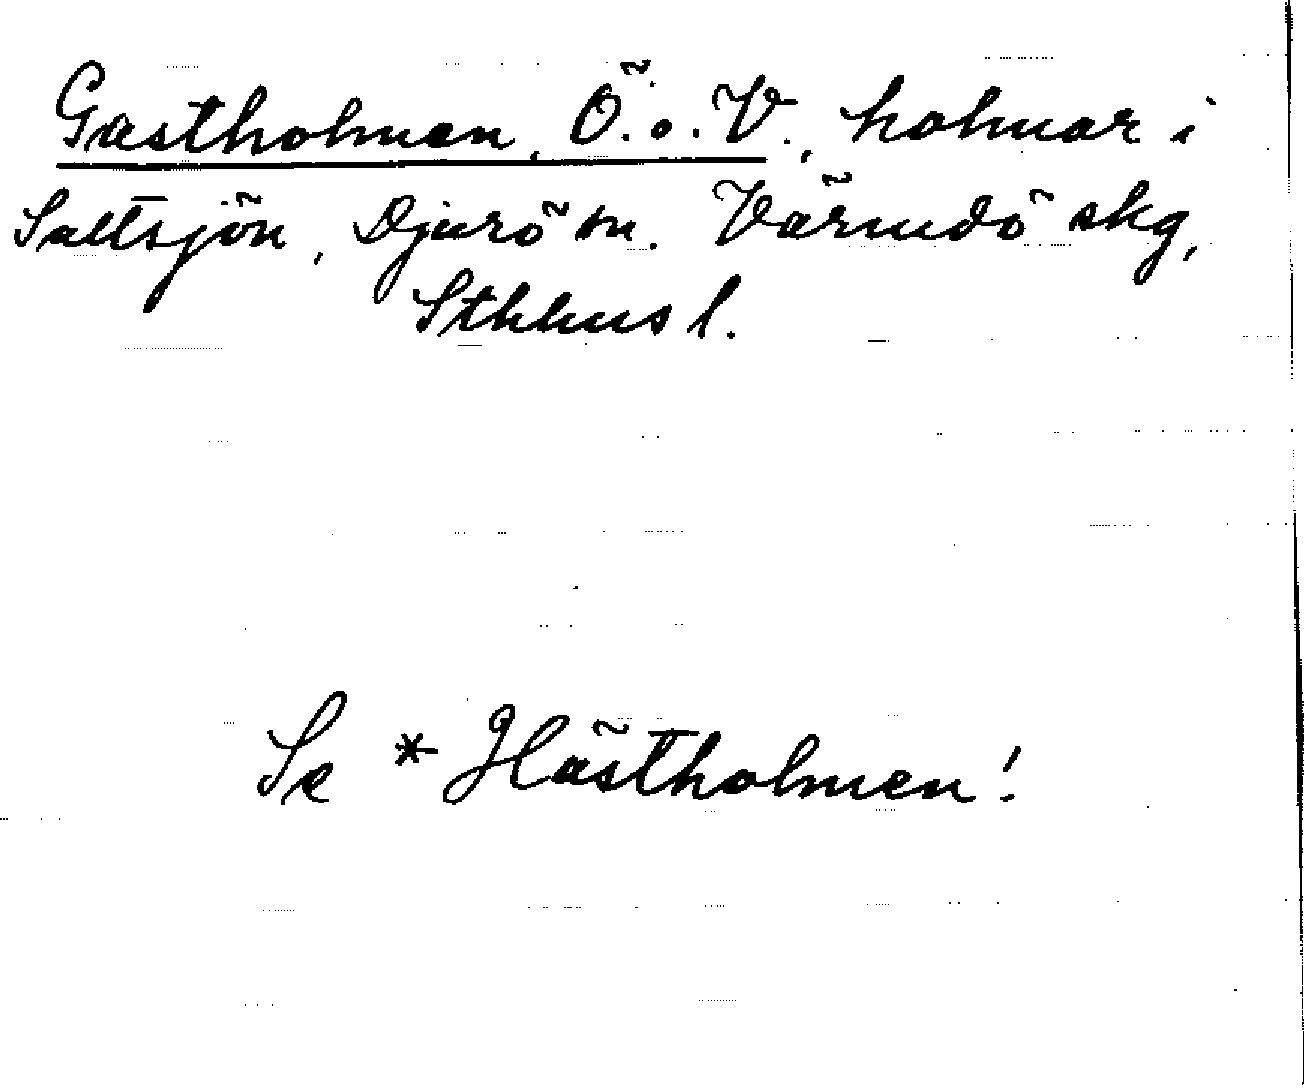 Gastholmen, Ö. o. V., holmar i
Saltsjön, Djurö sn. Värmdö skg,
Sthlms l.
Se * Hästholmen!